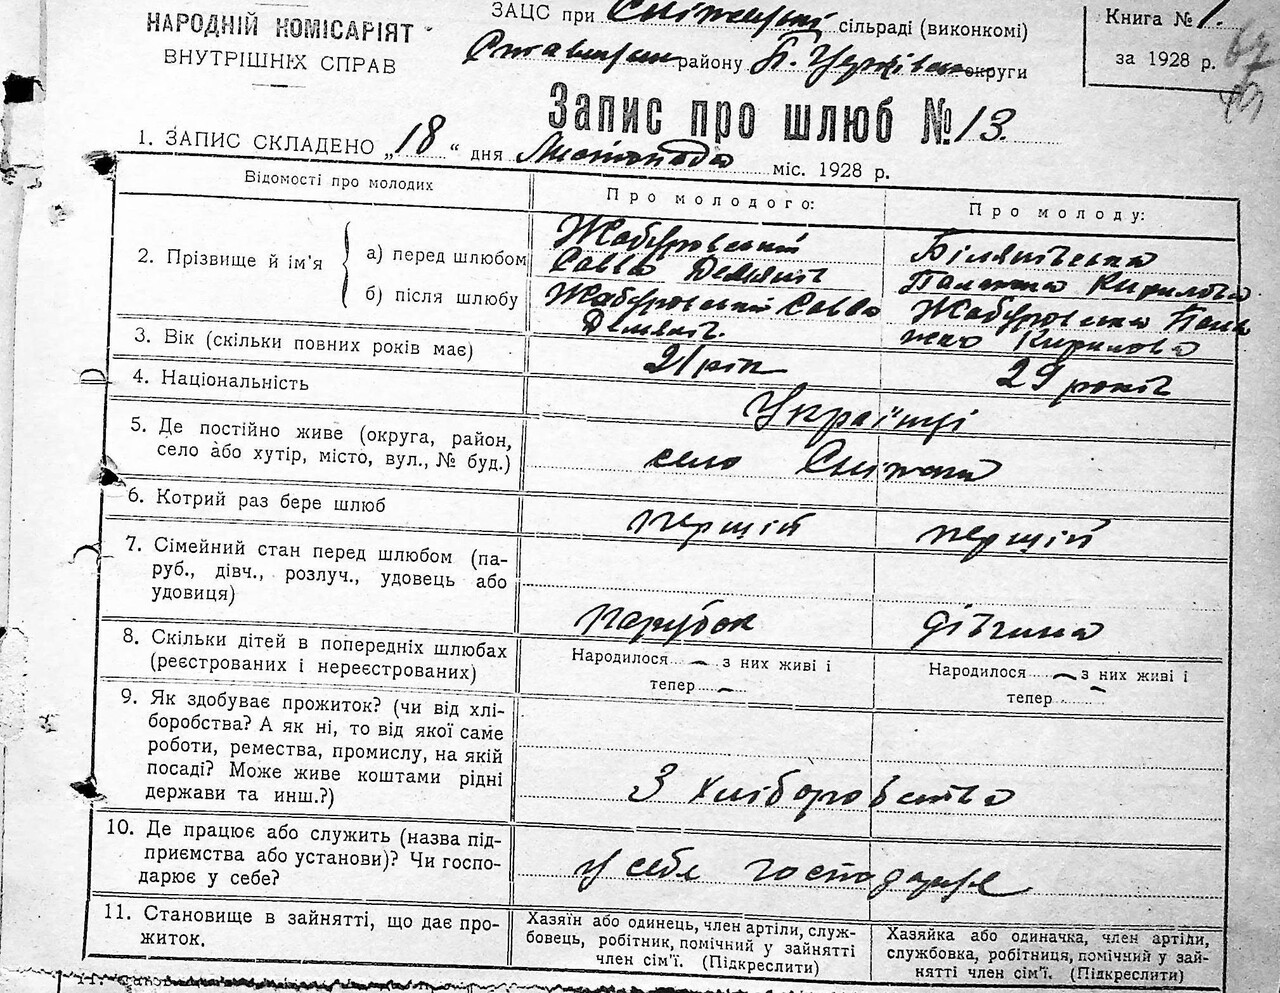 НАРОДНІЙ КОМІСАРІЯТ
ВНУТРІШНІХ СПРАВ
ЗАЦС при сільраді (виконкомі)
району Б. Церківської округи
Книга № 1.
за 1928 р.
67
Запис про шлюб № 13.
1. ЗАПИС СКЛАДЕНО „18“ дня Листопада міс. 1928 р.
Відомості про молодих
Про молодого:
Про молоду:
2. Прізвище й ім'я
а) перед шлюбом
Жабуровський
Савва Демянів
Білянівська
Палажка Кирилова
б) після шлюбу
Жабуровський Савва
Демянів.
Жабуровська Пала
жка Кирилова
3. Вік (скільки повних років має)
21 рік
29 років
4. Національність
Українці
5. Де постійно живе (округа, район,
село або хутір, місто, вул., № буд.)
село Сніжки
6. Котрий раз бере шлюб
перший
перший
7. Сімейний стан перед шлюбом (па-
руб., дівч., розлуч., удовець або
удовиця)
парубок
дівчина
8. Скільки дітей в попередніх шлюбах
(реєстрованих і нереєстрованих)
Народилося — з них живі і
тепер —
Народилося — з них живі і
тепер —
9. Як здобуває прожиток? (чи від хлі-
боробства? А як ні, то від якої саме
роботи, ремества, промислу, на якій
посаді? Може живе коштами рідні
держави та инш.?)
З хліборобства
10. Де працює або служить (назва під-
приємства або установи)? Чи госпо-
дарює у себе?
у себе господарює
11. Становище в зайнятті, що дає про-
житок.
Хазяїн або одинець, член артіли, служ-
бовець, робітник, помічний у зайнятті
член сім'ї. (Підкреслити)
Хазяйка або одиначка, член артіли,
службовка, робітниця, помічний у зай-
нятті член сім'ї. (Підкреслити)